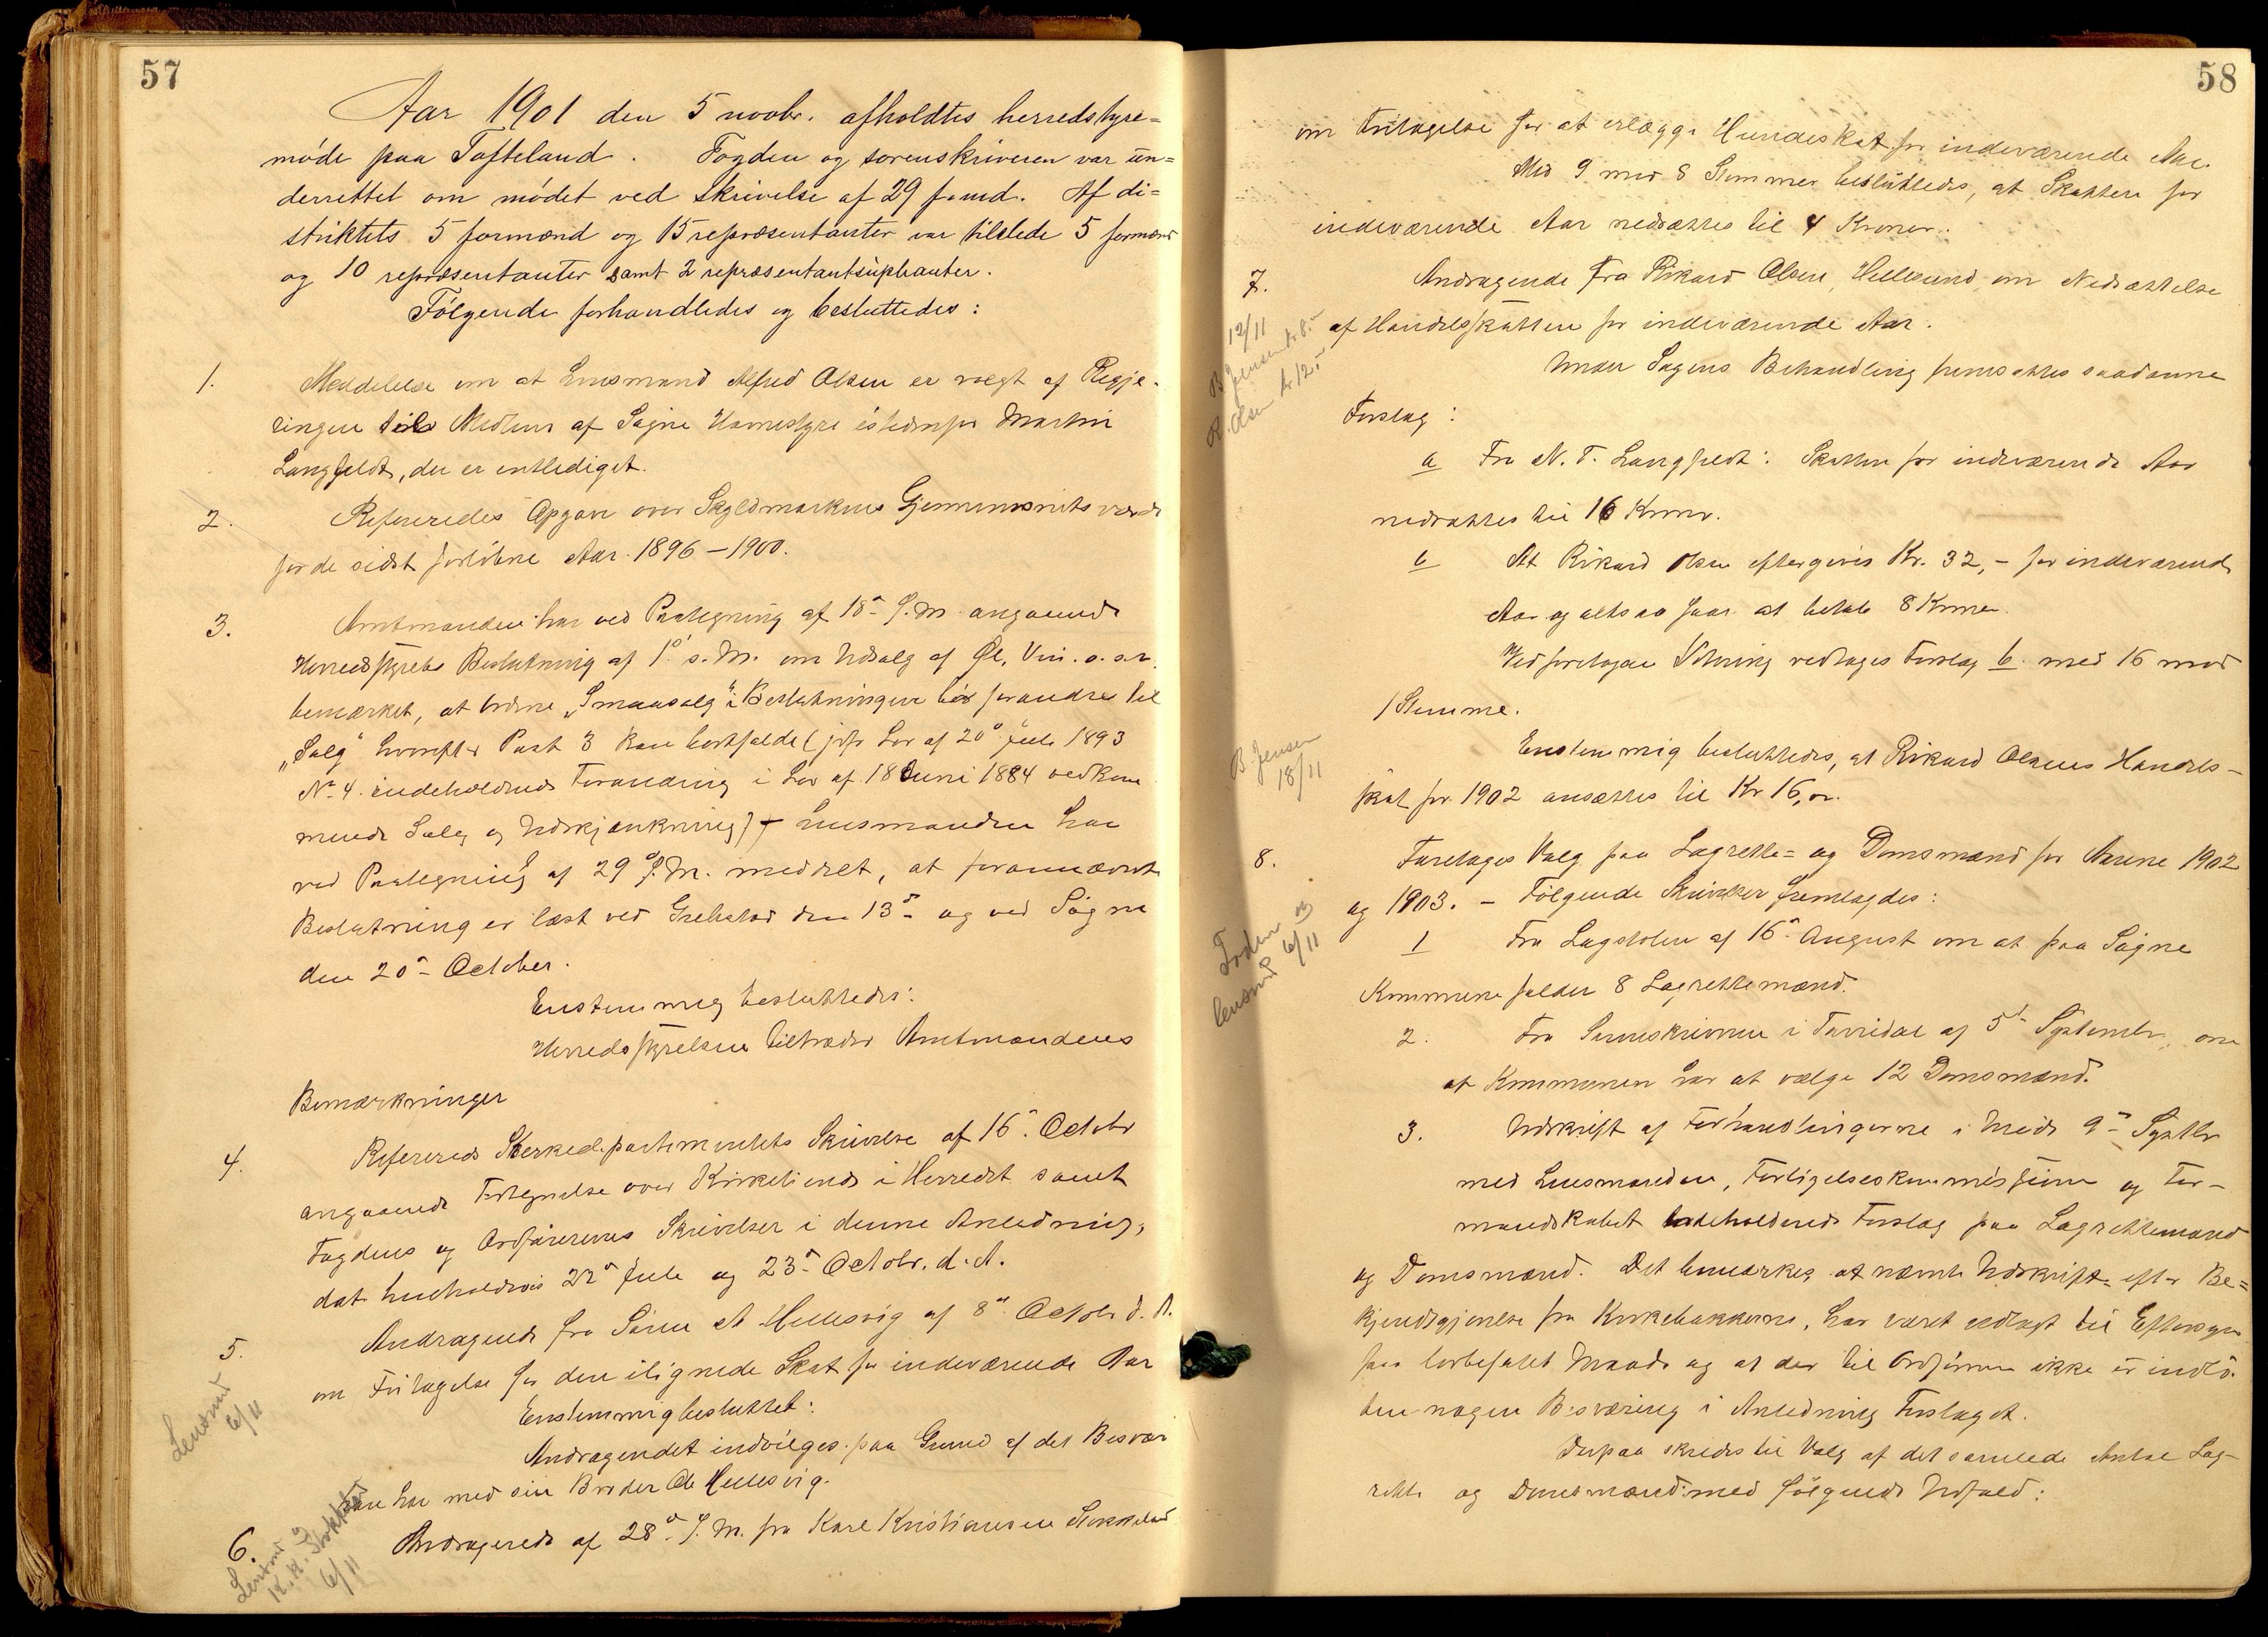 57
Aar 1901 den 5 novbr. afholdtes herredstyre=
møde paa Tofteland. Fogden og sorenskriveren var un=
derrettet om mødet ved skrivelse af 29 f. md. Af di=
striktets 5 formænd og 15 repræsentanter var tilstede 5 formænd
og 10 repræsentanter samt 2 repræsentantsupleanter.
Følgende forhandledes og besluttedes:
1. Meddelelse om at Lensmand Alfred Olsen er valgt af Regje-
ringen til Medlem af Søgne Havnestyre istedenfor Martin
Langfeldt, der er entlediget.
2. Refereredes Opgave over Skyldmarkens Gjennemsnitsværdi
for de sidst forløbne Aar 1896-1900.
3. Amtmanden har ved Paategning af 18de f. M. angaaende
Herredsstyrets Beslutning af 1e s. M. om Udsalg af Øl, Vin o.s.v.
bemærket, at Ordene "Smaasalg" i Beslutningen bør forandres til
"Salg" hvorefter Post 3 kan bortfalde (jvfr Lov af 20de Juli 1893
No 4 indeholdende Forandring i Lov af 18 Juni 1884 vedkom
mende Salg og Udskjænkning) + Lensmanden har
ved Paategning af 29de f. M. meddelt, at forannævnte
Beslutning er læst ved Grebstad den 13de og ved Søgne
den 20de October.
Enstemmig besluttedes:
Herredsstyrelsen tiltræder Amtmandens
Bemærkninger
4. Refereredes Kirkedepartementets Skrivelse af 16de Octobr
angaaende Fortegnelse over Kirketiende i Herredet samt
Fogdens og Ordførerens Skrivelser i denne Anledning,
dat. henholdsvis 22de Juli og 23de Octobr. d. A.
5. Andragende fra Sørine A Hellesvig af 8de Octobr d. A.
om Fritagelse for den ilignede Skat for indeværende Aar
Enstemmig besluttet:
Andragendet indvilges paa Grund af det Besvær
han har med sin Broder Ole Hellesvig.
Lensmd
6/11
6. Andragende af 28de f. M. fra Karl Kristiansen Stokkeland
Lensmd og
K. K. Stokkeland
6/11
58
om Fritagelse for at erlægge Hundeskat for indeværende Aar.
Med 9 mod 8 Stemmer besluttedes, at Skatten for
indeværende Aar nedsættes til 4 Kroner.
7. Andragende fra Rikard Olsen, Hellesund, om Nedsættelse
af Handelsskatten for indeværende Aar.
12/11
B Jensen kr 8.-
R. Olsen kr 12.-
Under Sagens Behandling fremsattes saadanne
Forslag:
a Fra N. T. Langfeldt: Skatten for indeværende Aar
nedsættes til 16 Kroner.
b At Rikard Olsen eftergives Kr. 32,- for indeværende
Aar og altsaa faar at betale 8 Kroner.
Ved foretagen Votering vedtages Forslag b. med 16 mod
1 Stemme.
Enstemmig besluttedes, at Rikard Olsens Handels-
skat for 1902 ansættes til Kr 16,00.
B. Jensen
18/11
8. Foretages Valg paa Lagrette= og Domsmænd for Aarene 1902
og 1903. - Følgende Skrivelser fremlagdes:
Foden og
lensmd 6/11
1 Fra Lagstolen af 16de August om at paa Søgne
Kommune falder 8 Lagrettemænd.
2. Fra Sorenskriveren i Torridal af 5te Septembr, om
at Kommunen har at vælge 12 Domsmænd.
3. Udskrift af Forhandlingerne i Møde 9de Septbr
med Lensmanden, Forligelseskommissionen og For-
mandskabet indeholdende Forslag paa Lagrettemænd
og Domsmænd. Det bemærkes at nævnte Udskrift efter Be=
kjendtgjørelse fra Kirkebakkerne, har været udlagt til Eftersyn
paa lovbefalet Maade og at der til Ordføreren ikke er indlø-
ben nogen Besværing i Anledning Forslaget.
Derpaa skredes til Valg af det samlede Antal Lag-
rette og Domsmænd med følgende Udfald: